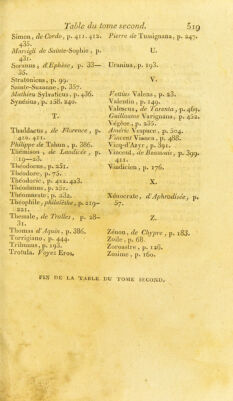 Table du tome second. 519
Simon, de Cordo, p. 411. 412.
435.
Marsigli de Sainte-Sophie, p.
431.
Soranus, d'Ephèse, p. 33—
35.
Stratonicus, p. 99.
Sainte-Suzanne, p. 357.
Mathieu Sylvaticus, p. 436.
Synésius, p. 138. 240.
T.
Thaddaeus, de Florence, p.
420. 421.
Philippe de Tahun, p. 386.
Thémison, de Laodicée, p.
19—23.
Théodocus, p. 251.
Théodore, p. 75.
Théodoric, p. 422. 423.
Théodunus, p. 251.
Théomneste, p. 232.
Théophile, philolèthe, p. 219—
221.
Thessale, de Tralles, p. 28—
31.
Thomas d'Aquin, p. 386.
Torrigiano, p. 444.
Tribunus, p. 193.
Trotula. Voyez Eros.
Pierre de Tumignana, p. 247.
U.
Uranius, p. 193.
V.
Vettius Valens, p. 23.
Valentin, p. 149.
Valescus, de Tarenta, p. 469.
Guillaume Varignana, p. 452.
Végèce, p. 235.
Améric Vespuce, p. 504.
Vincent Vianeo, p. 488.
Vicq-d'Azyr, p. 391.
Vincent, de Beauvais, p. 399.
411.
Vindicien, p. 176.
X.
Xénocrate, d'Aphrodisée, p.
57.
Z.
Zénon, de Chypre, p. 183.
Zoïle, p. 68.
Zoroastre, p. 126.
Zosime, p. 160.
FIN DE LA TABLE DU TOME SECOND.